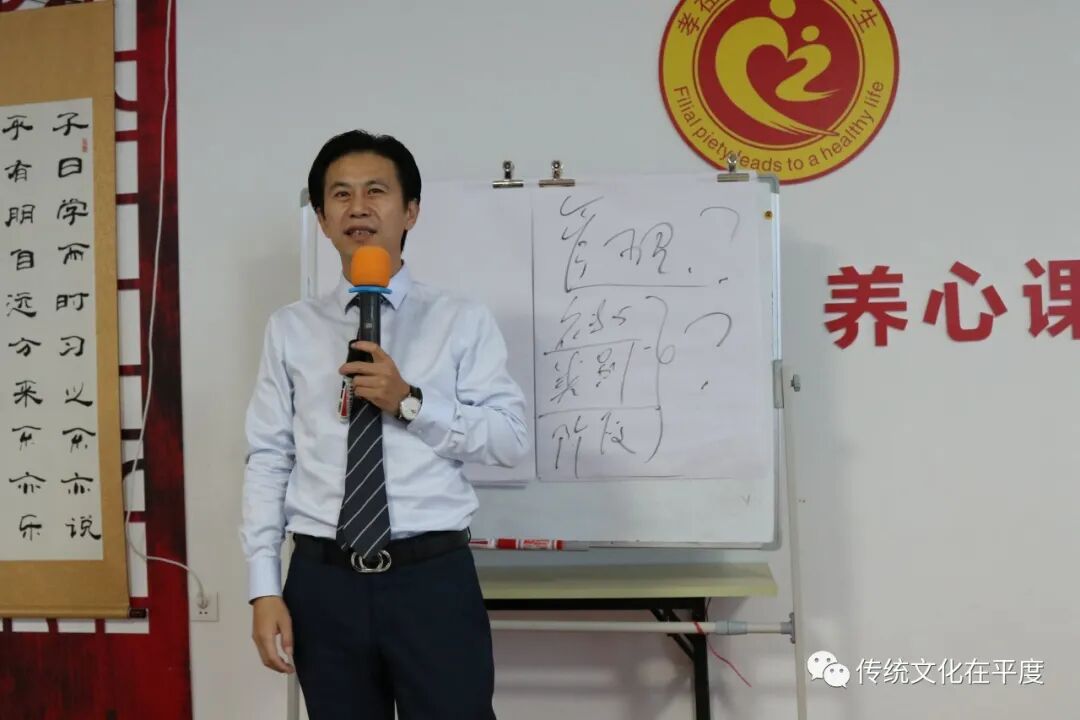 子曰学而时习之不亦说
乎有朋自远方来不亦乐
孝在
生
Filial piety leads to a healthy life
管理?
类别
?
阶段
养心课
传统文化在平度